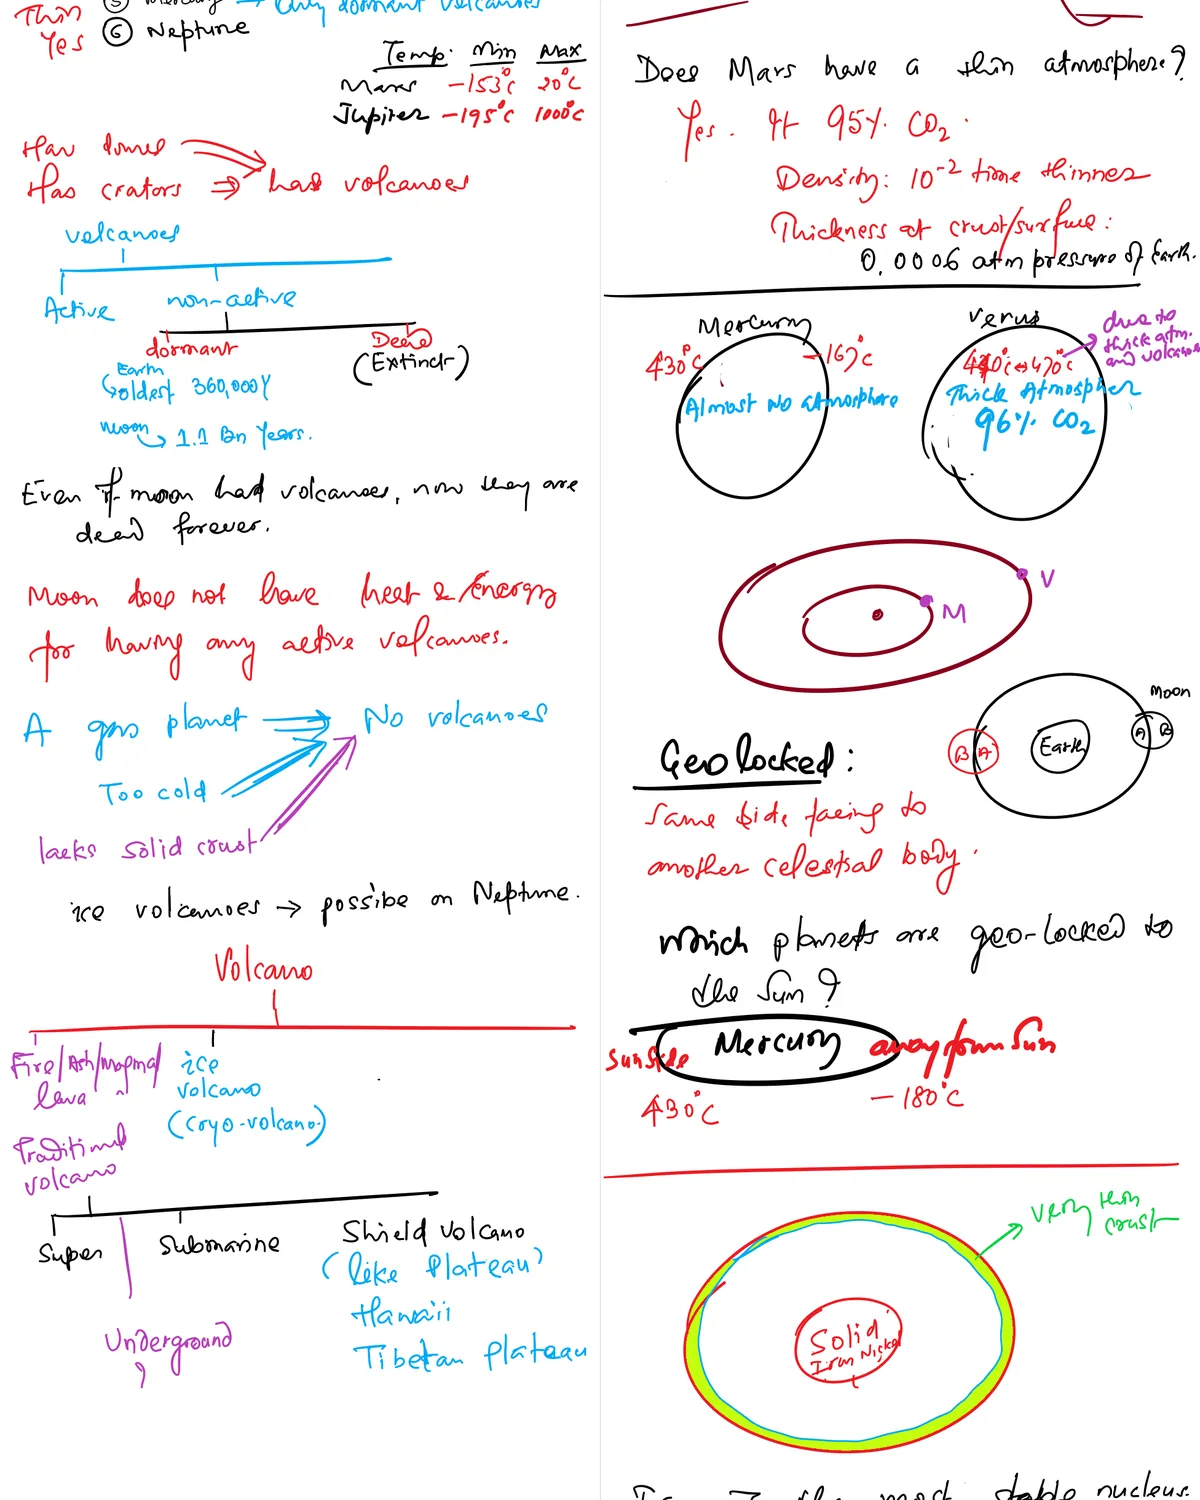 Thin
Yes
⑥ Neptune
Only dormant volcanoes
Temp. Min Max
Mars -153°C 20°C
Jupiter -195°C 1000°C
Has domes
Has crators ⇒ had volcanoes
volcanoes
Active
non-active
dormant
Dead
(Extinct)
Earth
oldest 360,000Y
moon
1.1 Bn Years.
Even if moon had volcanoes, now they are
dead forever.
Moon does not have heat & Energy
for having any active volcanoes.
A gas planet → No volcanoes
Too cold
lacks solid crust
ice volcanoes → possibe on Neptune.
Volcano
Fire/Ash/Magma/
lava
ice
volcano
(cryo-volcano)
Traditional
volcano
Super
Submarine
Shield volcano
(like Plateau)
Hawaii
Tibetan plateau
Underground
?
Does Mars have a thin atmosphere?
Yes. It 95% CO2.
Density: 10⁻² time thinner
Thickness at crust/surface:
0.0006 atm pressure of Earth.
Mercury
430°C
Almost No atmosphere
Venus
due to
thick atm.
and volcanoes
↔ 470°C
Thick Atmospher
96% CO2
V
M
Moon
A B
Earth
B A
Geo locked:
Same side facing to
another celestial body.
Which planets are geo-locked to
the Sun?
Sun side Mercury away from Sun
430°C -180°C
very thin
crust
Solid
Iron Nickel
the most stable nucleus